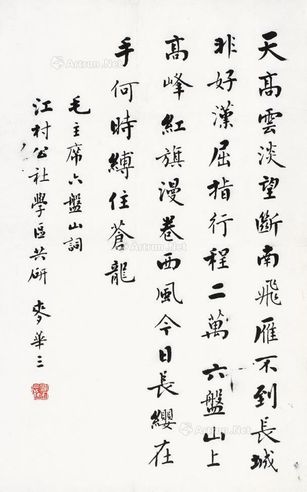 天高雲淡望斷南飛雁不到長城
非好漢屈指行程二萬六盤山上
高峰紅旗漫卷西風今日長纓在
手何時縛住蒼龍
毛主席六盤山詞
江村公社學區共研 麥華三